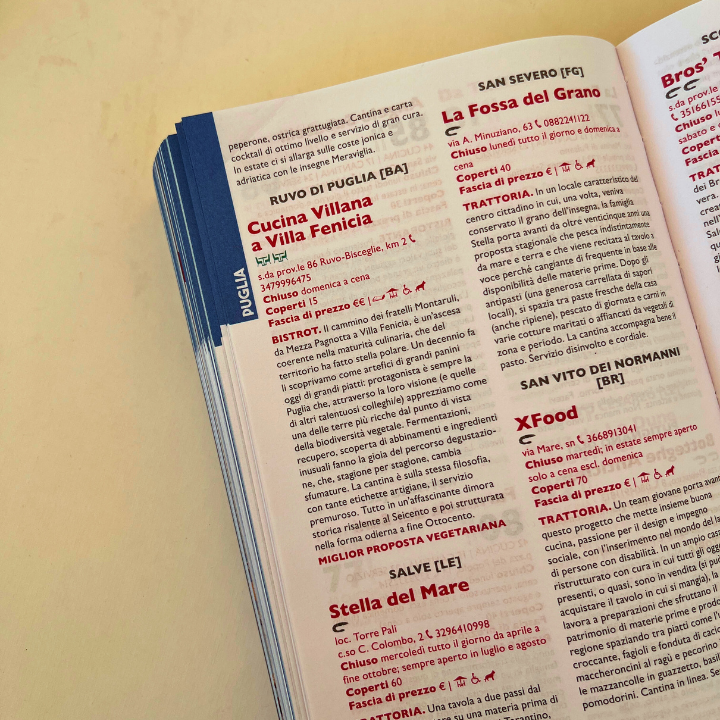 PUGLIA
peperone, ostrica grattugiata. Cantina e carta
cocktail di ottimo livello e servizio di gran cura.
In estate ci si allarga sulle coste jonica e
adriatica con le insegne Meraviglia.
RUVO DI PUGLIA [BA]
Cucina Villana
a Villa Fenicia
s.da prov.le 86 Ruvo-Bisceglie, km 2
3479996475
Chiuso domenica a cena
Coperti 15
Fascia di prezzo €€ |
BISTROT. Il cammino dei fratelli Montaruli,
da Mezza Pagnotta a Villa Fenicia, è un'ascesa
coerente nella maturità culinaria, che del
territorio ha fatto stella polare. Un decennio fa
li scoprivamo come artefici di grandi panini
oggi di grandi piatti: protagonista è sempre la
Puglia che, attraverso la loro visione (e quelle
di altri talentuosi colleghi/e) apprezziamo come
una delle terre più ricche dal punto di vista
della biodiversità vegetale. Fermentazioni,
recupero, scoperta di abbinamenti e ingredienti
inusuali fanno la gioia del percorso degustazio-
ne, che, stagione per stagione, cambia
sfumature. La cantina è sulla stessa filosofia,
con tante etichette artigiane, il servizio
premuroso. Tutto in un'affascinante dimora
storica risalente al Seicento e poi strutturata
nella forma odierna a fine Ottocento.
MIGLIOR PROPOSTA VEGETARIANA
SALVE [LE]
Stella del Mare
loc. Torre Pali
c.so C. Colombo, 2 3296410998
Chiuso mercoledì tutto il giorno da aprile a
fine ottobre; sempre aperto in luglio e agosto
Coperti 60
Fascia di prezzo € |
TRATTORIA. Una tavola a due passi dal
su una materia prima di
Tarantino,
SAN SEVERO [FG]
La Fossa del Grano
via A. Minuziano, 63 0882241122
Chiuso lunedì tutto il giorno e domenica a
cena
Coperti 40
Fascia di prezzo € |
TRATTORIA. In un locale caratteristico del
centro cittadino in cui, una volta, veniva
conservato il grano dell'insegna, la famiglia
Stella porta avanti da oltre venticinque anni una
proposta stagionale che pesca indistintamente
da mare e terra e che viene recitata al tavolo a
voce perché cangiante di frequente in base alle
disponibilità delle materie prime. Dopo gli
antipasti (una generosa carrellata di sapori
locali), si spazia tra paste fresche della casa
(anche ripiene), pescato di giornata e carni in
varie cotture maritati o affiancati da vegetali di
zona e periodo. La cantina accompagna bene il
pasto. Servizio disinvolto e cordiale.
SAN VITO DEI NORMANNI
[BR]
XFood
via Mare, sn 3668913041
Chiuso martedì; in estate sempre aperto
solo a cena escl. domenica
Coperti 70
Fascia di prezzo € |
TRATTORIA. Un team giovane porta avan
questo progetto che mette insieme buona
cucina, passione per il design e impegno
sociale, con l'inserimento nel mondo del la
di persone con disabilità. In un ampio casa
ristrutturato con cura in cui tutti gli ogg
presenti, o quasi, sono in vendita (si può
acquistare il tavolo in cui si mangia), la
lavora a preparazioni che sfruttano il
patrimonio di materie prime e prodo
regione spaziando tra piatti come l'u
croccante, fagioli e fonduta di cacio
maccheroncini al ragù e pecorino
le mazzancolle in guazzetto, basil
pomodorini. Cantina in linea. Se
SCO
Bros' T
s.da prov.le
3516615
Chiuso lu
sabato e
Coperti
Fascia
TRAT
dei Br
vera.
crea
nell
Salv
que